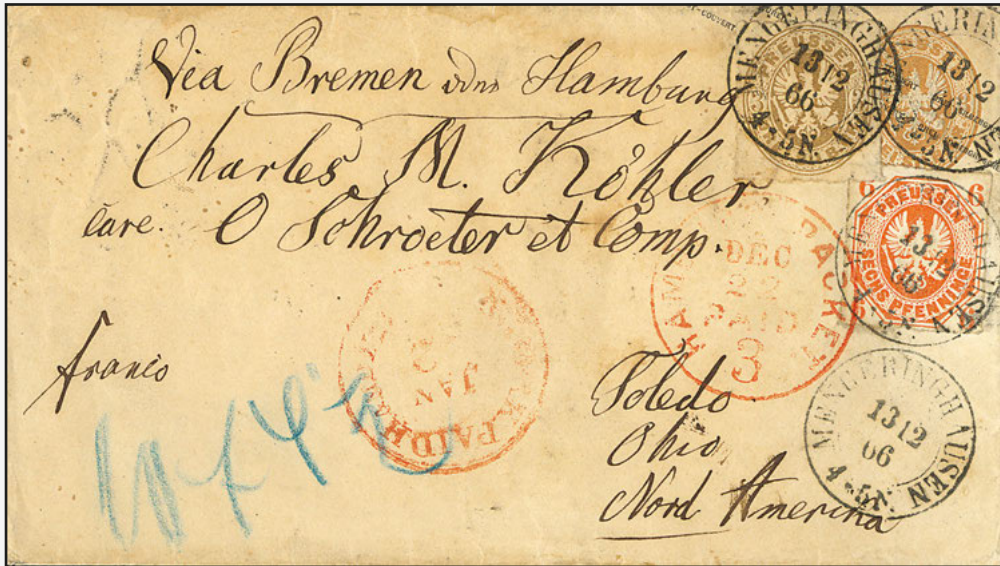 Via Bremen oder Hamburg
Charles M. Köhler
care. O Schroeter et Comp.
franco
Toledo
Ohio
Nord America
MENGERINGHAUSEN
13 12
66
4-5N.
PREUSSEN
MENGERINGHAUSEN
13 12
66
4-5N.
PREUSSEN
6 6
PREUSSEN
SECHS PFENNINGE
13 12
66
MENGERINGHAUSEN
13 12
66
4-5N.
HAM PACKET
DEC
22
PAID
3
PAID
JAN